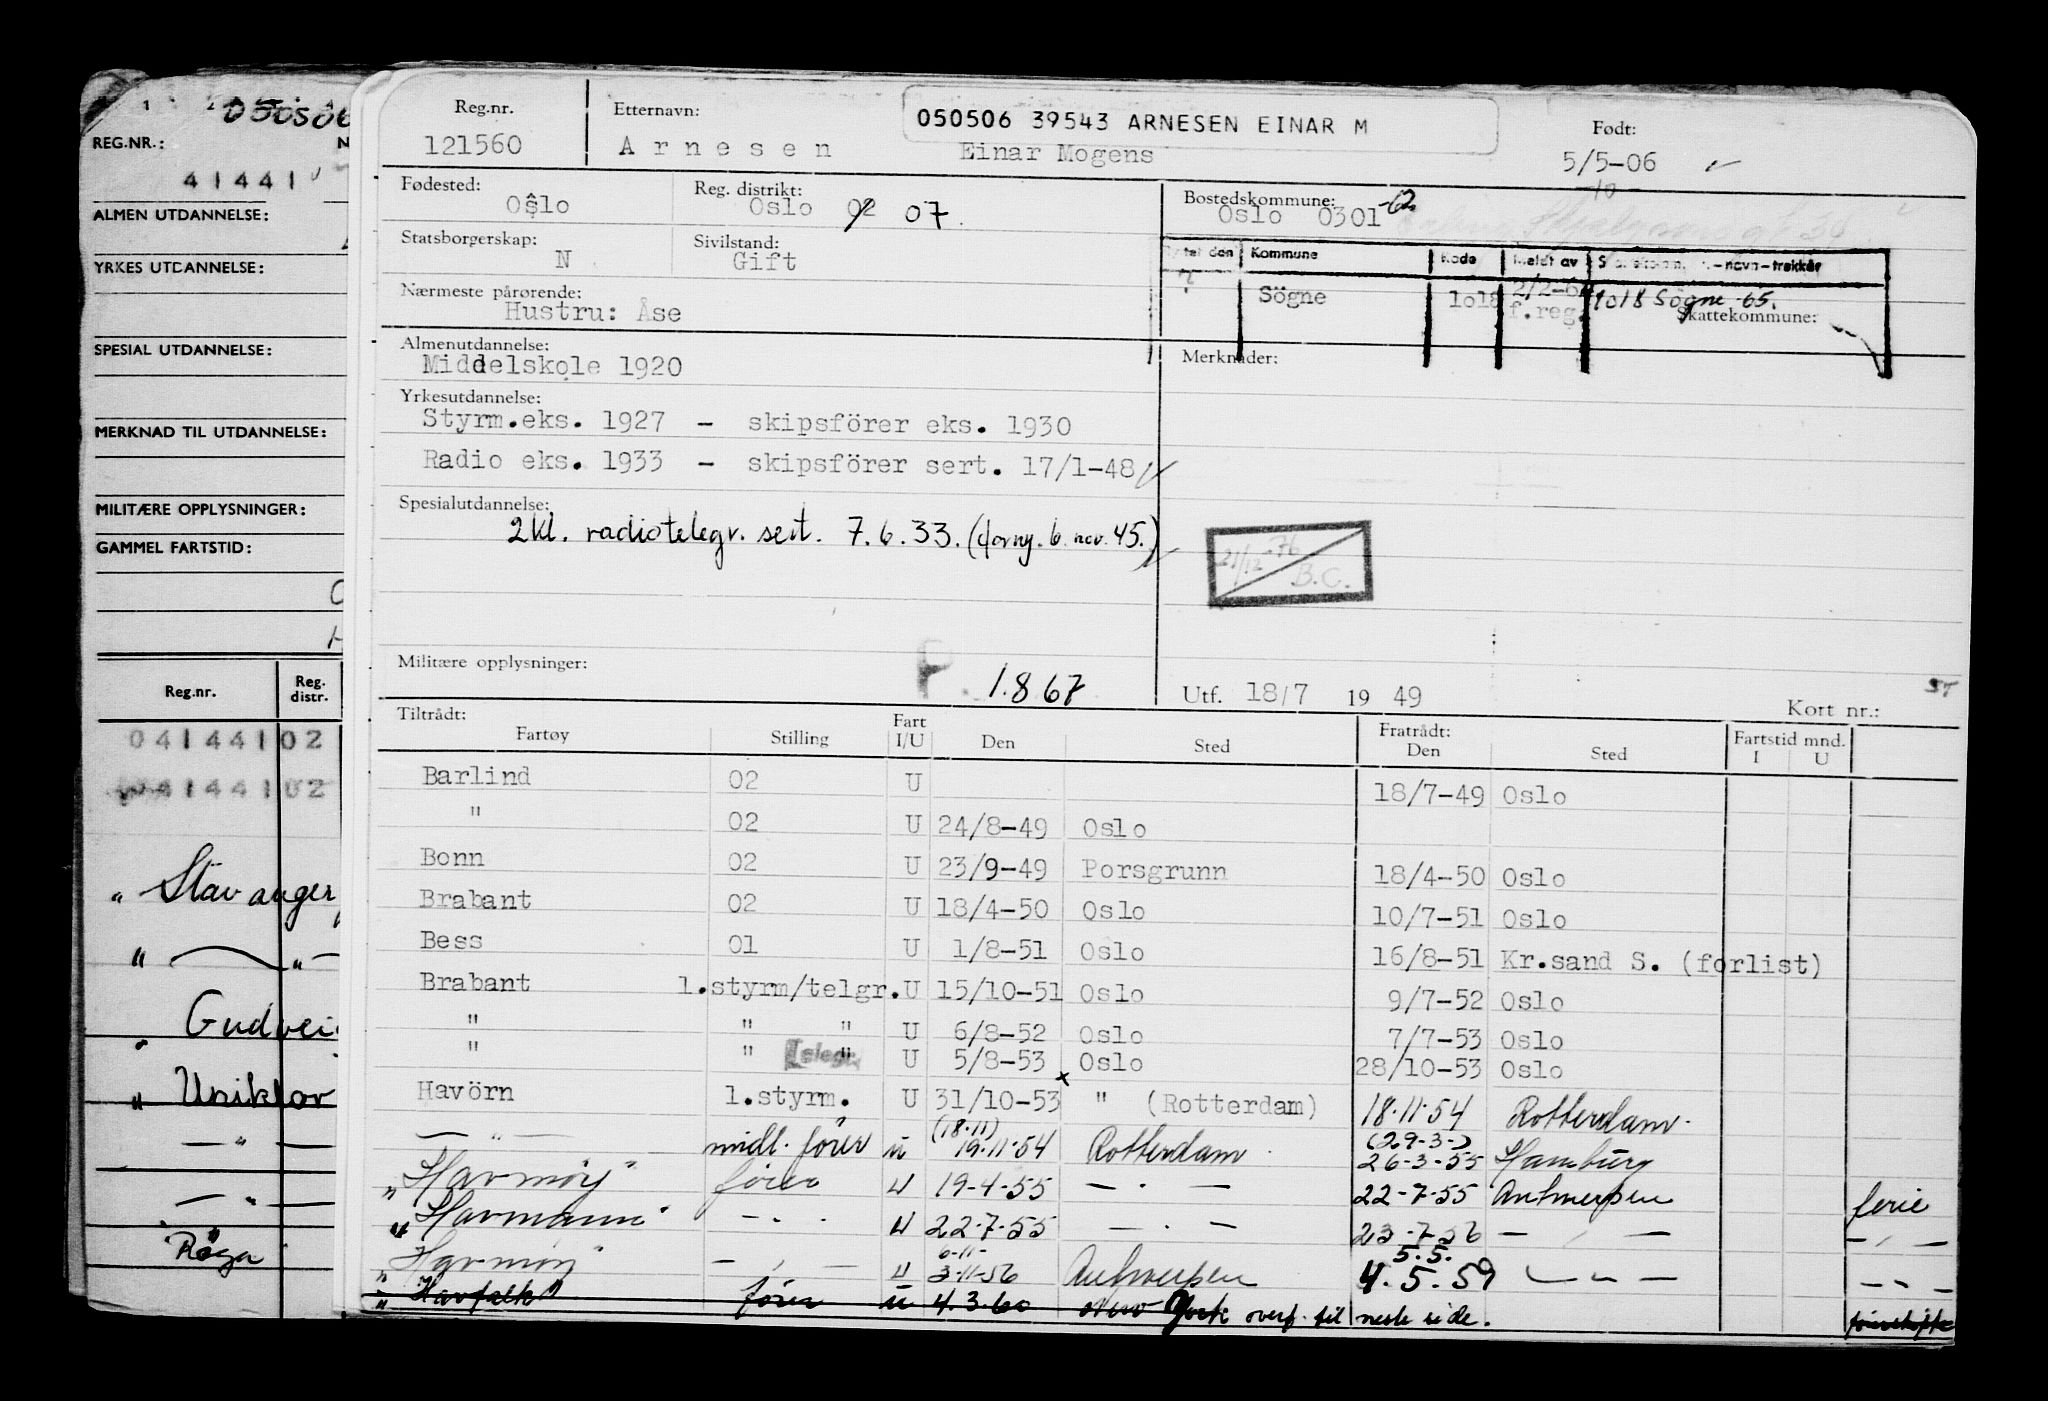 050506
REG.NR.: N
41441
ALMEN UTDANNELSE:
YRKES UTDANNELSE:
SPESIAL UTDANNELSE:
MERKNAD TIL UTDANNELSE:
MILITÆRE OPPLYSNINGER:
GAMMEL FARTSTID:
Reg.nr. Reg. distr.
04144102
04144102
" Stavanger
" — " —
" Gudvei
" Uniklor
— " —
— " —
Røga
Reg.nr. Etternavn: 050506 39543 ARNESEN EINAR M Født:
121560 Arnesen Einar Mogens 5/5-06
Fødested: Reg. distrikt: Bostedskommune:
Oslo Oslo 02 07. Oslo 0301
Statsborgerskap: Sivilstand:
N Gift
Kommune Kode Meldt av -navn-trekker
Nærmeste pårørende: Søgne 1018 2/2-6 f.reg. 1018 Søgne 65.
Hustru: Åse Skattekommune:
Almenutdannelse: Merknader:
Middelskole 1920
Yrkesutdannelse:
Styrm.eks. 1927 - skipsförer eks. 1930
Radio eks. 1933 - skipsförer sert. 17/1-48
Spesialutdannelse:
2 kl. radiotelegr. sert. 7.6.33. (forny. 6. nov. 45.)
21/12-76 B.C.
Militære opplysninger: P. 1.8 67 Utf. 18/7 19 49 Kort nr.:
Tiltrådt: Fratrådt: Fartstid mnd.
Fartøy Stilling Fart I/U Den Sted Den Sted I U
Barlind 02 U 18/7-49 Oslo
" 02 U 24/8-49 Oslo
Bonn 02 U 23/9-49 Porsgrunn 18/4-50 Oslo
Brabant 02 U 18/4-50 Oslo 10/7-51 Oslo
Bess 01 U 1/8-51 Oslo 16/8-51 Kr.sand S. (forlist)
Brabant 1.styrm/telgr. U 15/10-51 Oslo 9/7-52 Oslo
" " " U 6/8-52 Oslo 7/7-53 Oslo
" " " U 5/8-53 Oslo 28/10-53 Oslo
Havörn 1.styrm. U 31/10-53 x " (Rotterdam) 18.11.54 Rotterdam.
— " — midl. fører u (18.11) 19.11.54 Rotterdam (29-3-) 26-3-55 Hamburg
"Havmøy" fører U 19-4-55 — " — 22-7-55 Antwerpen ferie
"Havmann" — " — U 22-7-55 — " — 23-7-56 — " — — " —
"Havmøy" — " — U 6-11- 3-11-56 Antwerpen 5.5. 4.5.59 — " — — " —
"Havfalk" fører u 4.3.60 New York overf. til neste side.